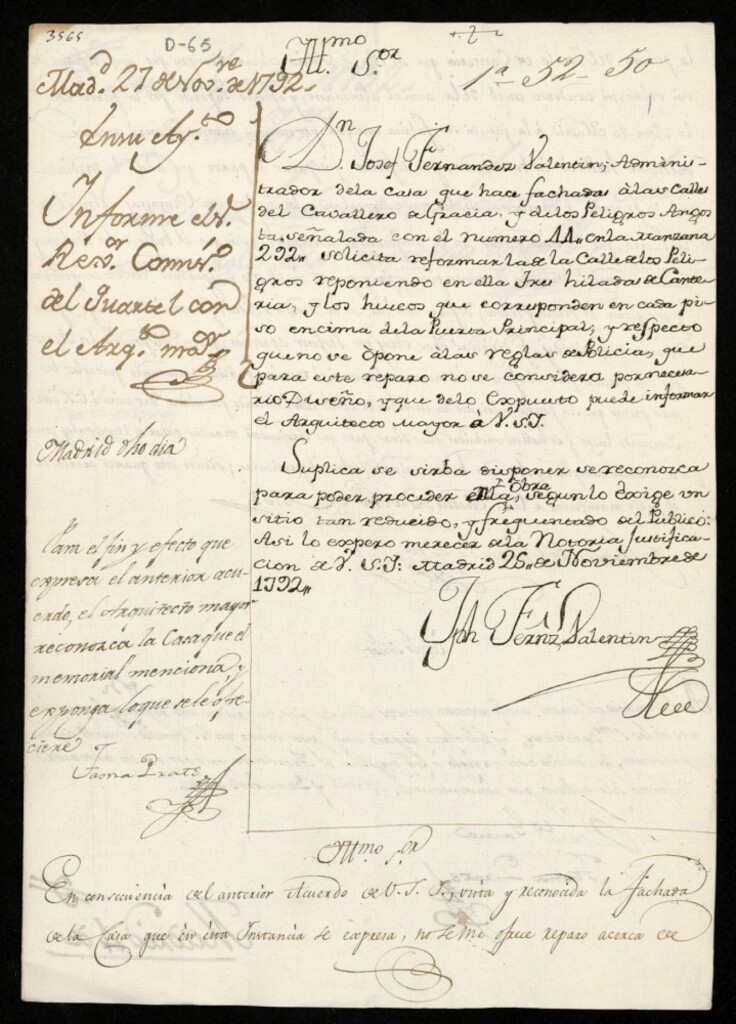 3565
D-65
Yll.mo S.or
1ª 52-50
Mad.d 27 de Nov.re de 1792.
En su Ay.to
Informe el S.r
Rex.or Comis.o
del Quartel con
el Arq.to mayor
D.n Josef Fernandez Valentin, Adminis-
trador dela casa que hace fachadas à las Calles
del Cavallero de Gracia, y delos Peligros Angos-
ta, señalada con el numero 11 en la Manzana
292,, solicita reformar la de la Calle de los Peli-
gros reponiendo en ella tres hiladas de Cante-
ria, y los huecos que corresponden en cada pi-
so encima dela Puerta Principal, y respecto
que no se òpone àlas reglas de Policia, que
para este reparo no se considera por necesa-
rio Diseño, y que delo Expuesto puede informar
el Arquitecto Mayor à V.S.I.
Suplica se sirba disponer se reconozca
para poder proceder à la Obra, segun lo exige un
sitio tan reducido, y frequentado del Publico:
Asi lo espero merecer dela Notoria Justifica-
cion de V.S.I: Madrid 26,, de Noviembre de
1792,,
Jph Fernz Valentin
Madrid dho dia
Para el fin y efecto que
expresa el anterior acu-
erdo, el Arquitecto mayor
reconozca la Casa que el
memorial menciona, y
exponga lo que se le ofre-
ciere
Yll.mo S.or
En consecuencia del anterior Acuerdo de V.S.I., vista y reconocida la fachada
de la Casa que en esta Instancia se expresa, no se me ofrece reparo acerca de